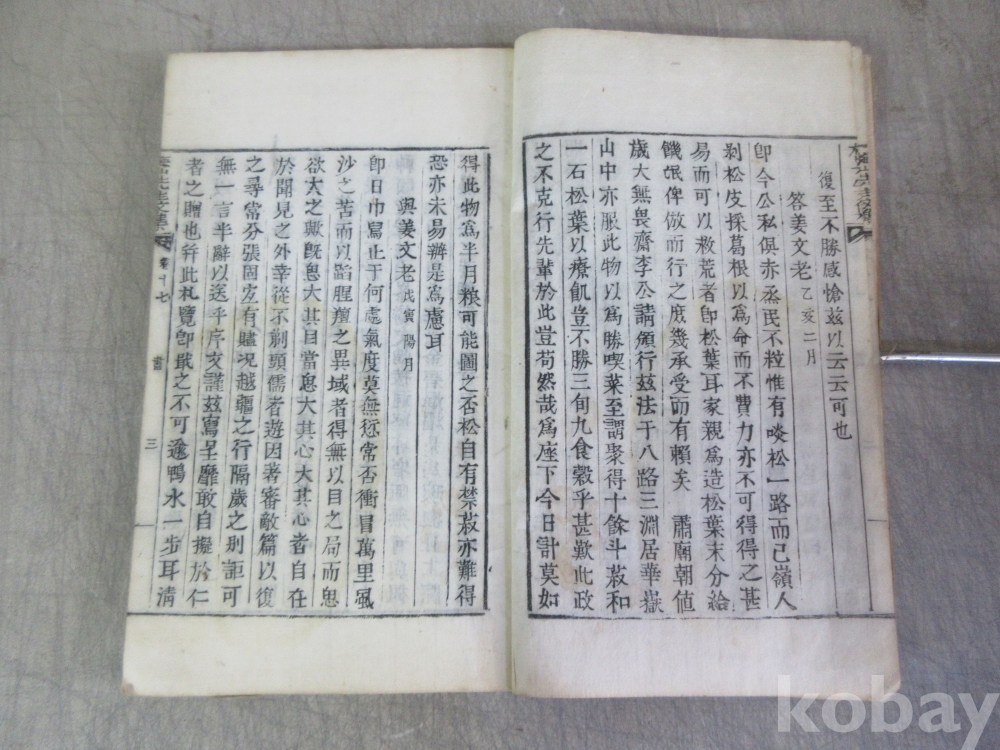 復至不勝感愴玆以云云可也
答姜文老 乙亥二月
卽今公私俱赤烝民不粒惟有啖松一路而已嶺人
剥松皮採葛根以爲命而不費力亦不可得得之甚
易而可以救荒者卽松葉耳家親爲造松葉末分給
饑氓俾倣而行之庶幾承受而有賴矣 肅廟朝値
歲大無畏齋李公請頒行玆法于八路三淵居華嶽
山中亦服此物以爲勝喫菜至謂聚得十餘斗菽和
一石松葉以療飢豈不勝三旬九食穀乎甚歎此政
之不克行先輩於此豈苟然哉爲座下今日計莫如
得此物爲半月粮可能圖之否松自有禁菽亦難得
恐亦未易辦是爲慮耳
與姜文老 戊寅陽月
卽日巾寫止于何處氣度莫無愆常否衝冒萬里風
沙之苦而以蹈腥羶之異域者得無以目之局而思
欲大之歟旣思大其目當思大其心大其心者自在
於聞見之外幸從不剃頭儒者遊因著審敵篇以復
之尋常分張固宜有贐況越疆之行隔歲之別詎可
無一言半辭以送乎序文謹玆寫呈靡敢自擬於仁
者之贈也幷此札覽卽戢之不可逾鴨水一步耳淸
先生文集
卷十七
書
三